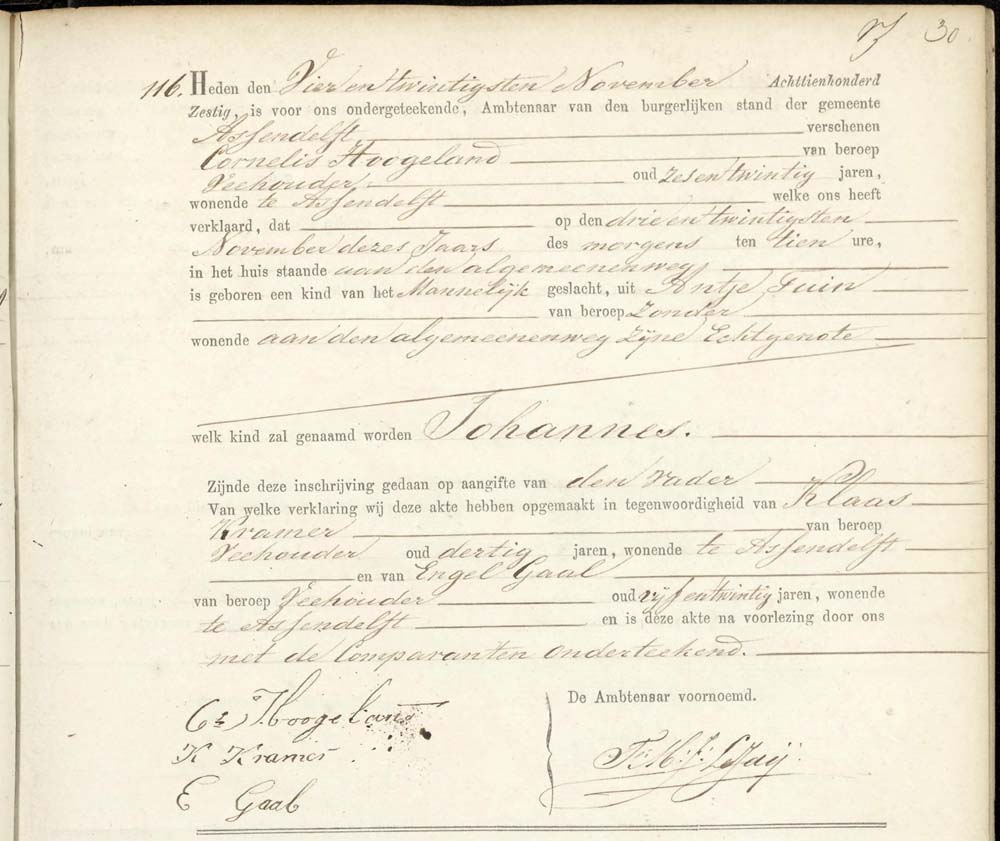 30
116. Heden den Vier en twintigsten November Achttienhonderd
Zestig, is voor ons ondergeteekende, Ambtenaar van den burgerlijken stand der gemeente
Assendelft verschenen
Cornelis Hoogeland van beroep
Veehouder oud zes en twintig jaren,
wonende te Assendelft welke ons heeft
verklaard, dat op den drie en twintigsten
November dezes Jaars des morgens ten tien ure,
in het huis staande aan den algemeenenweg
is geboren een kind van het Mannelijk geslacht, uit Antje Tuin
van beroep Zonder
wonende aan den algemeenenweg zijne Echtgenote
welk kind zal genaamd worden Johannes.
Zijnde deze inschrijving gedaan op aangifte van den vader
Van welke verklaring wij deze akte hebben opgemaakt in tegenwoordigheid van Klaas
Kramer van beroep
Veehouder oud dertig jaren, wonende te Assendelft
en van Engel Gaal
van beroep Veehouder oud vijf en twintig jaren, wonende
te Assendelft en is deze akte na voorlezing door ons
met de Comparanten onderteekend.
De Ambtenaar voornoemd.
Hoogeland
K Kramer
E Gaal